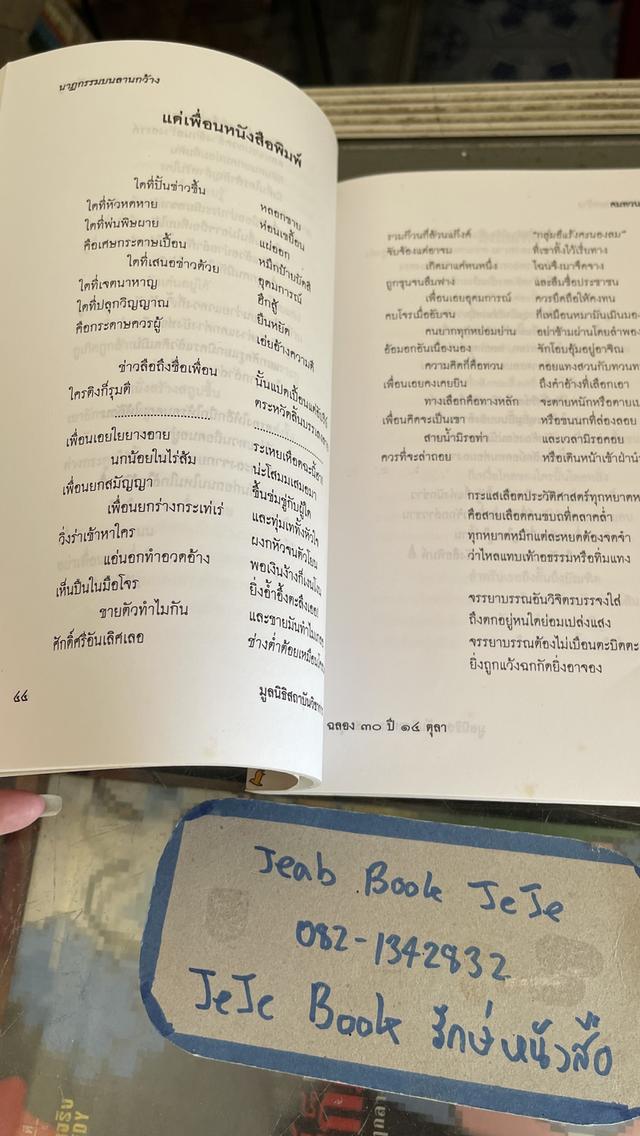 นาฏกรรมบนลานกว้าง
แด่เพื่อนหนังสือพิมพ์
ใดที่ปั้นข่าวขึ้น หลอกขาย
ใดที่หัวหดหาย ห่อนเขยื้อน
ใดที่พ่นพิษผาย แผ่ออก
คือเศษกระดาษเปื้อน หมึกป้ายบัดสี
ใดที่เสนอข่าวด้วย อุดมการณ์
ใดที่เจตนาหาญ ฮึกสู้
ใดที่ปลุกวิญญาณ ยืนหยัด
คือกระดาษควรผู้ เอ่ยอ้างความดี
ข่าวลือถึงชื่อเพื่อน นั้นแปดเปื้อน
ใครติงก็รุมตี ตระหวัดลิ้น
เพื่อนเอยใยยางอาย ระเหยเหือด
นกน้อยในไร่ส้ม น่ะโสมมเสมอมา
เพื่อนยกสมัญญา ขึ้นข่มขู่กับผู้ใด
เพื่อนยกร่างกระเท่เร่ และทุ่มเททั้งหัวใจ
วิ่งร่าเข้าหาใคร ผงกหัวจนตัวโยน
แอ่นอกทำอวดอ้าง พอเงินง้างก็
เห็นปืนในมือโจร ยิ่งอ้ำอึ้งตะลึงเลย
ขายตัวทำไมกัน และขายมันทำไม
ศักดิ์ศรีอันเลิศเลอ ช่างต่ำต้อยเหมือน
๔๔
มูลนิธิสถาบันวิชาการ
รวมก๊วนก็อ้วนแก๊งค์ "กลุ่มอีแร้งคะนองลม"
จับจ้องแต่อาจม ที่เขาทิ้งไว้เรี่ยทาง
เกิดมาแค่หนหนึ่ง โฉนจึงมาจืดจาง
ถูกขุนจนลืมฟาง และลืมชื่อประชาชน
เพื่อนเอยอุดมการณ์ ควรยึดถือให้คงทน
คบโจรเมื่ออับจน ที่เหมือนหมามันเมินมอง
คนยากทุกหย่อมย่าน อย่าข้ามผ่านโดยลำพอง
อ้อมอกอันเนืองนอง รักโอบอุ้มอยู่อาจิณ
ความคิดที่คือทวน คอยแทงสวนกับทวนท
เพื่อนเอยคงเคยยิน ถึงคำอ้างที่เลือกเอา
ทางเลือกคือทางหลัก จะตายหนักหรือตายเบ
เพื่อนคิดจะเป็นเขา หรือขนนกที่ล่องลอย
สายน้ำมิรอท่า และเวลามิรอคอย
ควรที่จะล่าถอย หรือเดินหน้าเข้าฝ่า
กระแสเลือดประวัติศาสตร์ทุกหยาดห
คือสายเลือดคนขบถที่คลาคล่ำ
ทุกหยาดหมึกแต่ละหยดต้องจดจำ
ว่าไหลแทบเท้าอธรรมหรือทิ่มแทง
จรรยาบรรณอันวิจิตรบรรจงใส่
ถึงตกอยู่หนใดย่อมเปล่งแสง
จรรยาบรรณต้องไม่เบือนตะบิดตะ
ยิ่งถูกแว้งฉกกัดยิ่งอาจอง
ฉลอง ๓๐ ปี ๑๔ ตุลา
Jeab Book JeJe
082-1342832
JeJe Book รักษ์หนังสือ